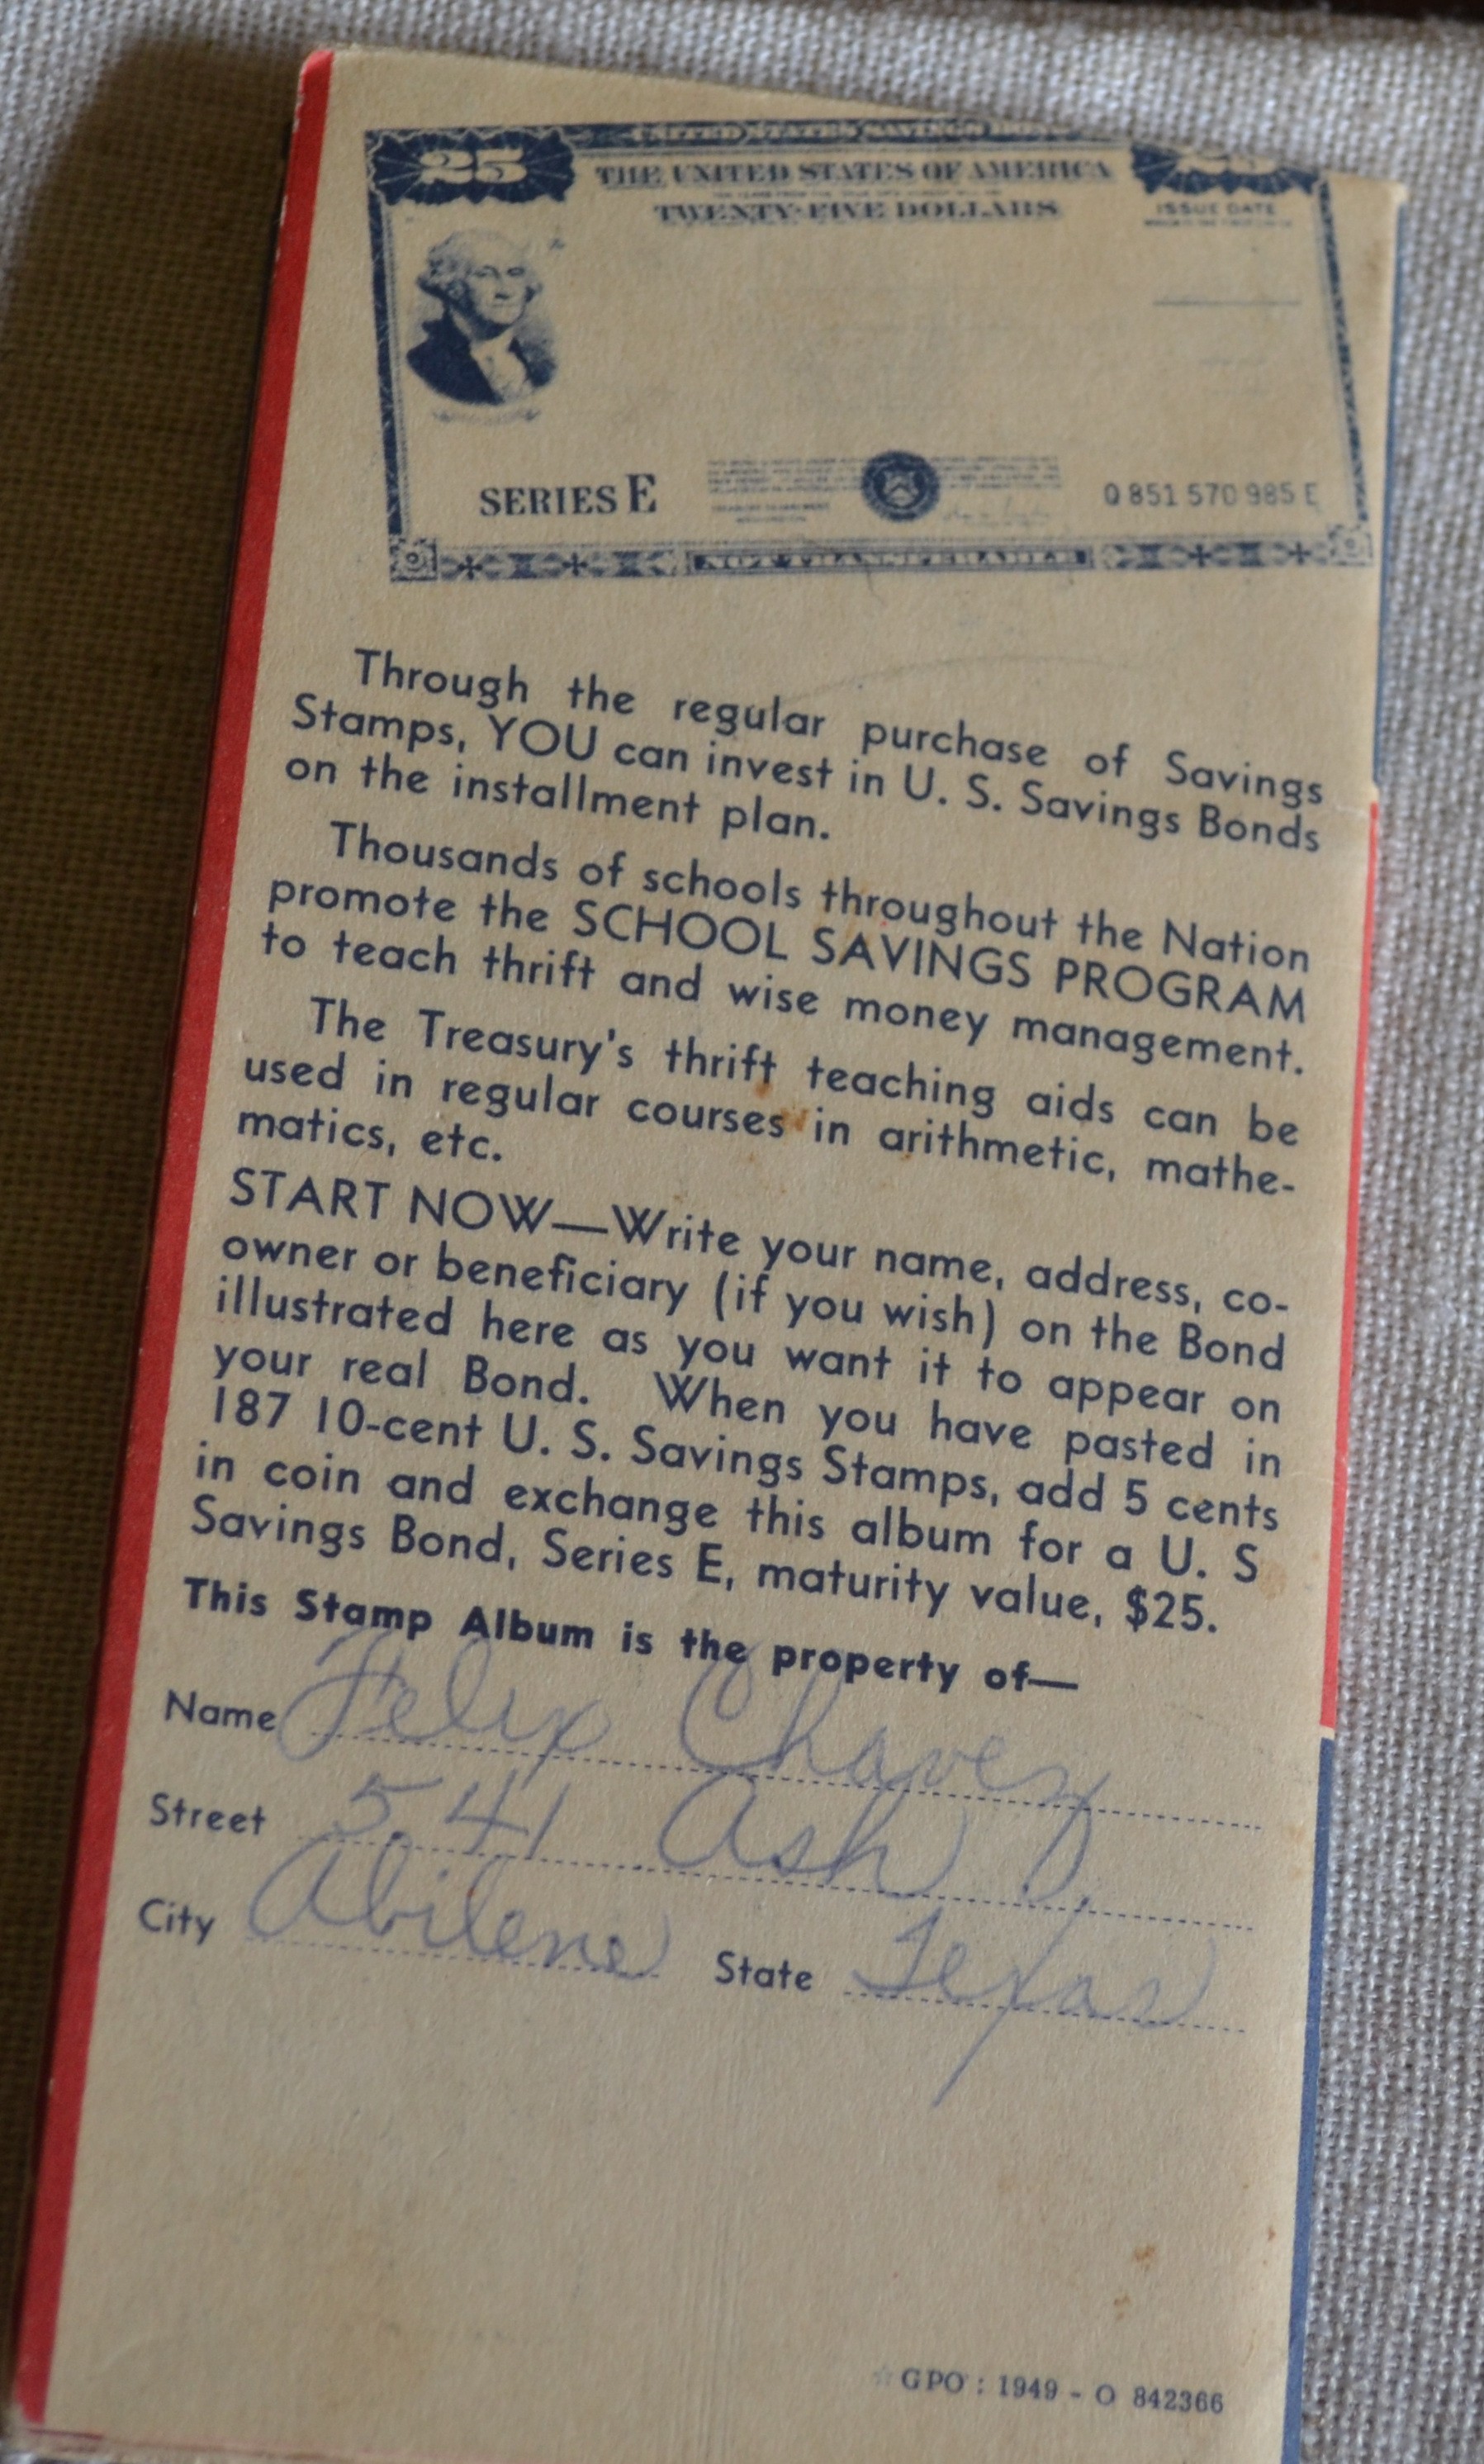 UNITED STATES SAVINGS BOND
25 THE UNITED STATES OF AMERICA 25
TWENTY-FIVE DOLLARS ISSUE DATE
SERIES E Q 851 570 985 E
NOT TRANSFERABLE
Through the regular purchase of Savings
Stamps, YOU can invest in U. S. Savings Bonds
on the installment plan.
Thousands of schools throughout the Nation
promote the SCHOOL SAVINGS PROGRAM
to teach thrift and wise money management.
The Treasury's thrift teaching aids can be
used in regular courses in arithmetic, mathe-
matics, etc.
START NOW—Write your name, address, co-
owner or beneficiary (if you wish) on the Bond
illustrated here as you want it to appear on
your real Bond. When you have pasted in
187 10-cent U. S. Savings Stamps, add 5 cents
in coin and exchange this album for a U. S
Savings Bond, Series E, maturity value, $25.
This Stamp Album is the property of—
Name Felix Chavez
Street 541 Ash
City Abilene State Texas
GPO : 1949 - O 842366